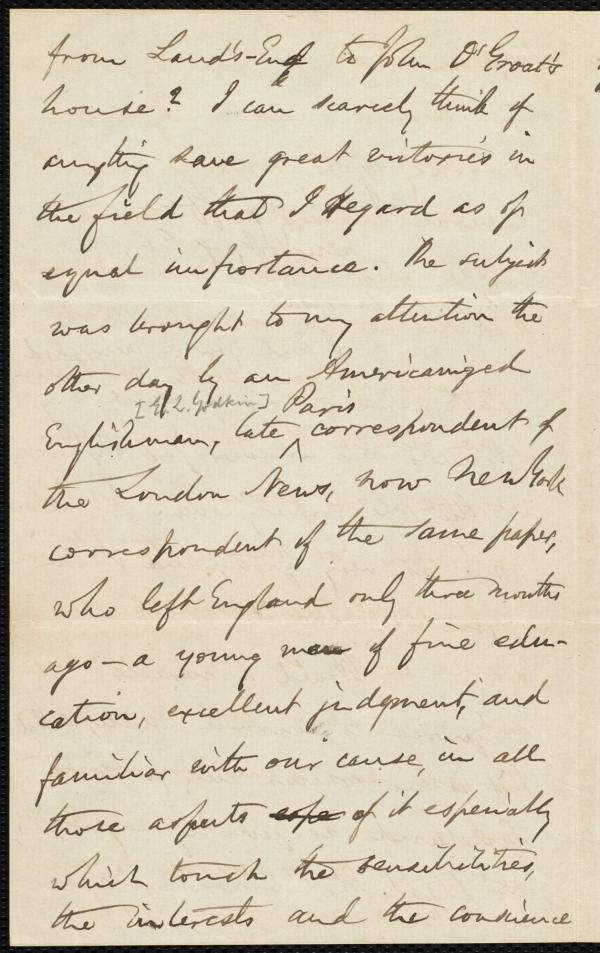 from Land's-End to John O'Groat's
house? I can scarcely think of
anything save great victories in
the field that I regard as of
equal importance. The subject
was brought to my attention the
other day by an Americanized
[E. L. Godkin] Paris
Englishman, late ^ correspondent of
the London News, now New York
correspondent of the same paper,
who left England only three months
ago—a young man of fine edu-
cation, excellent judgment, and
familiar with our cause, in all
those aspects espe of it especially
which touch the sensibilities,
the interests and the conscience